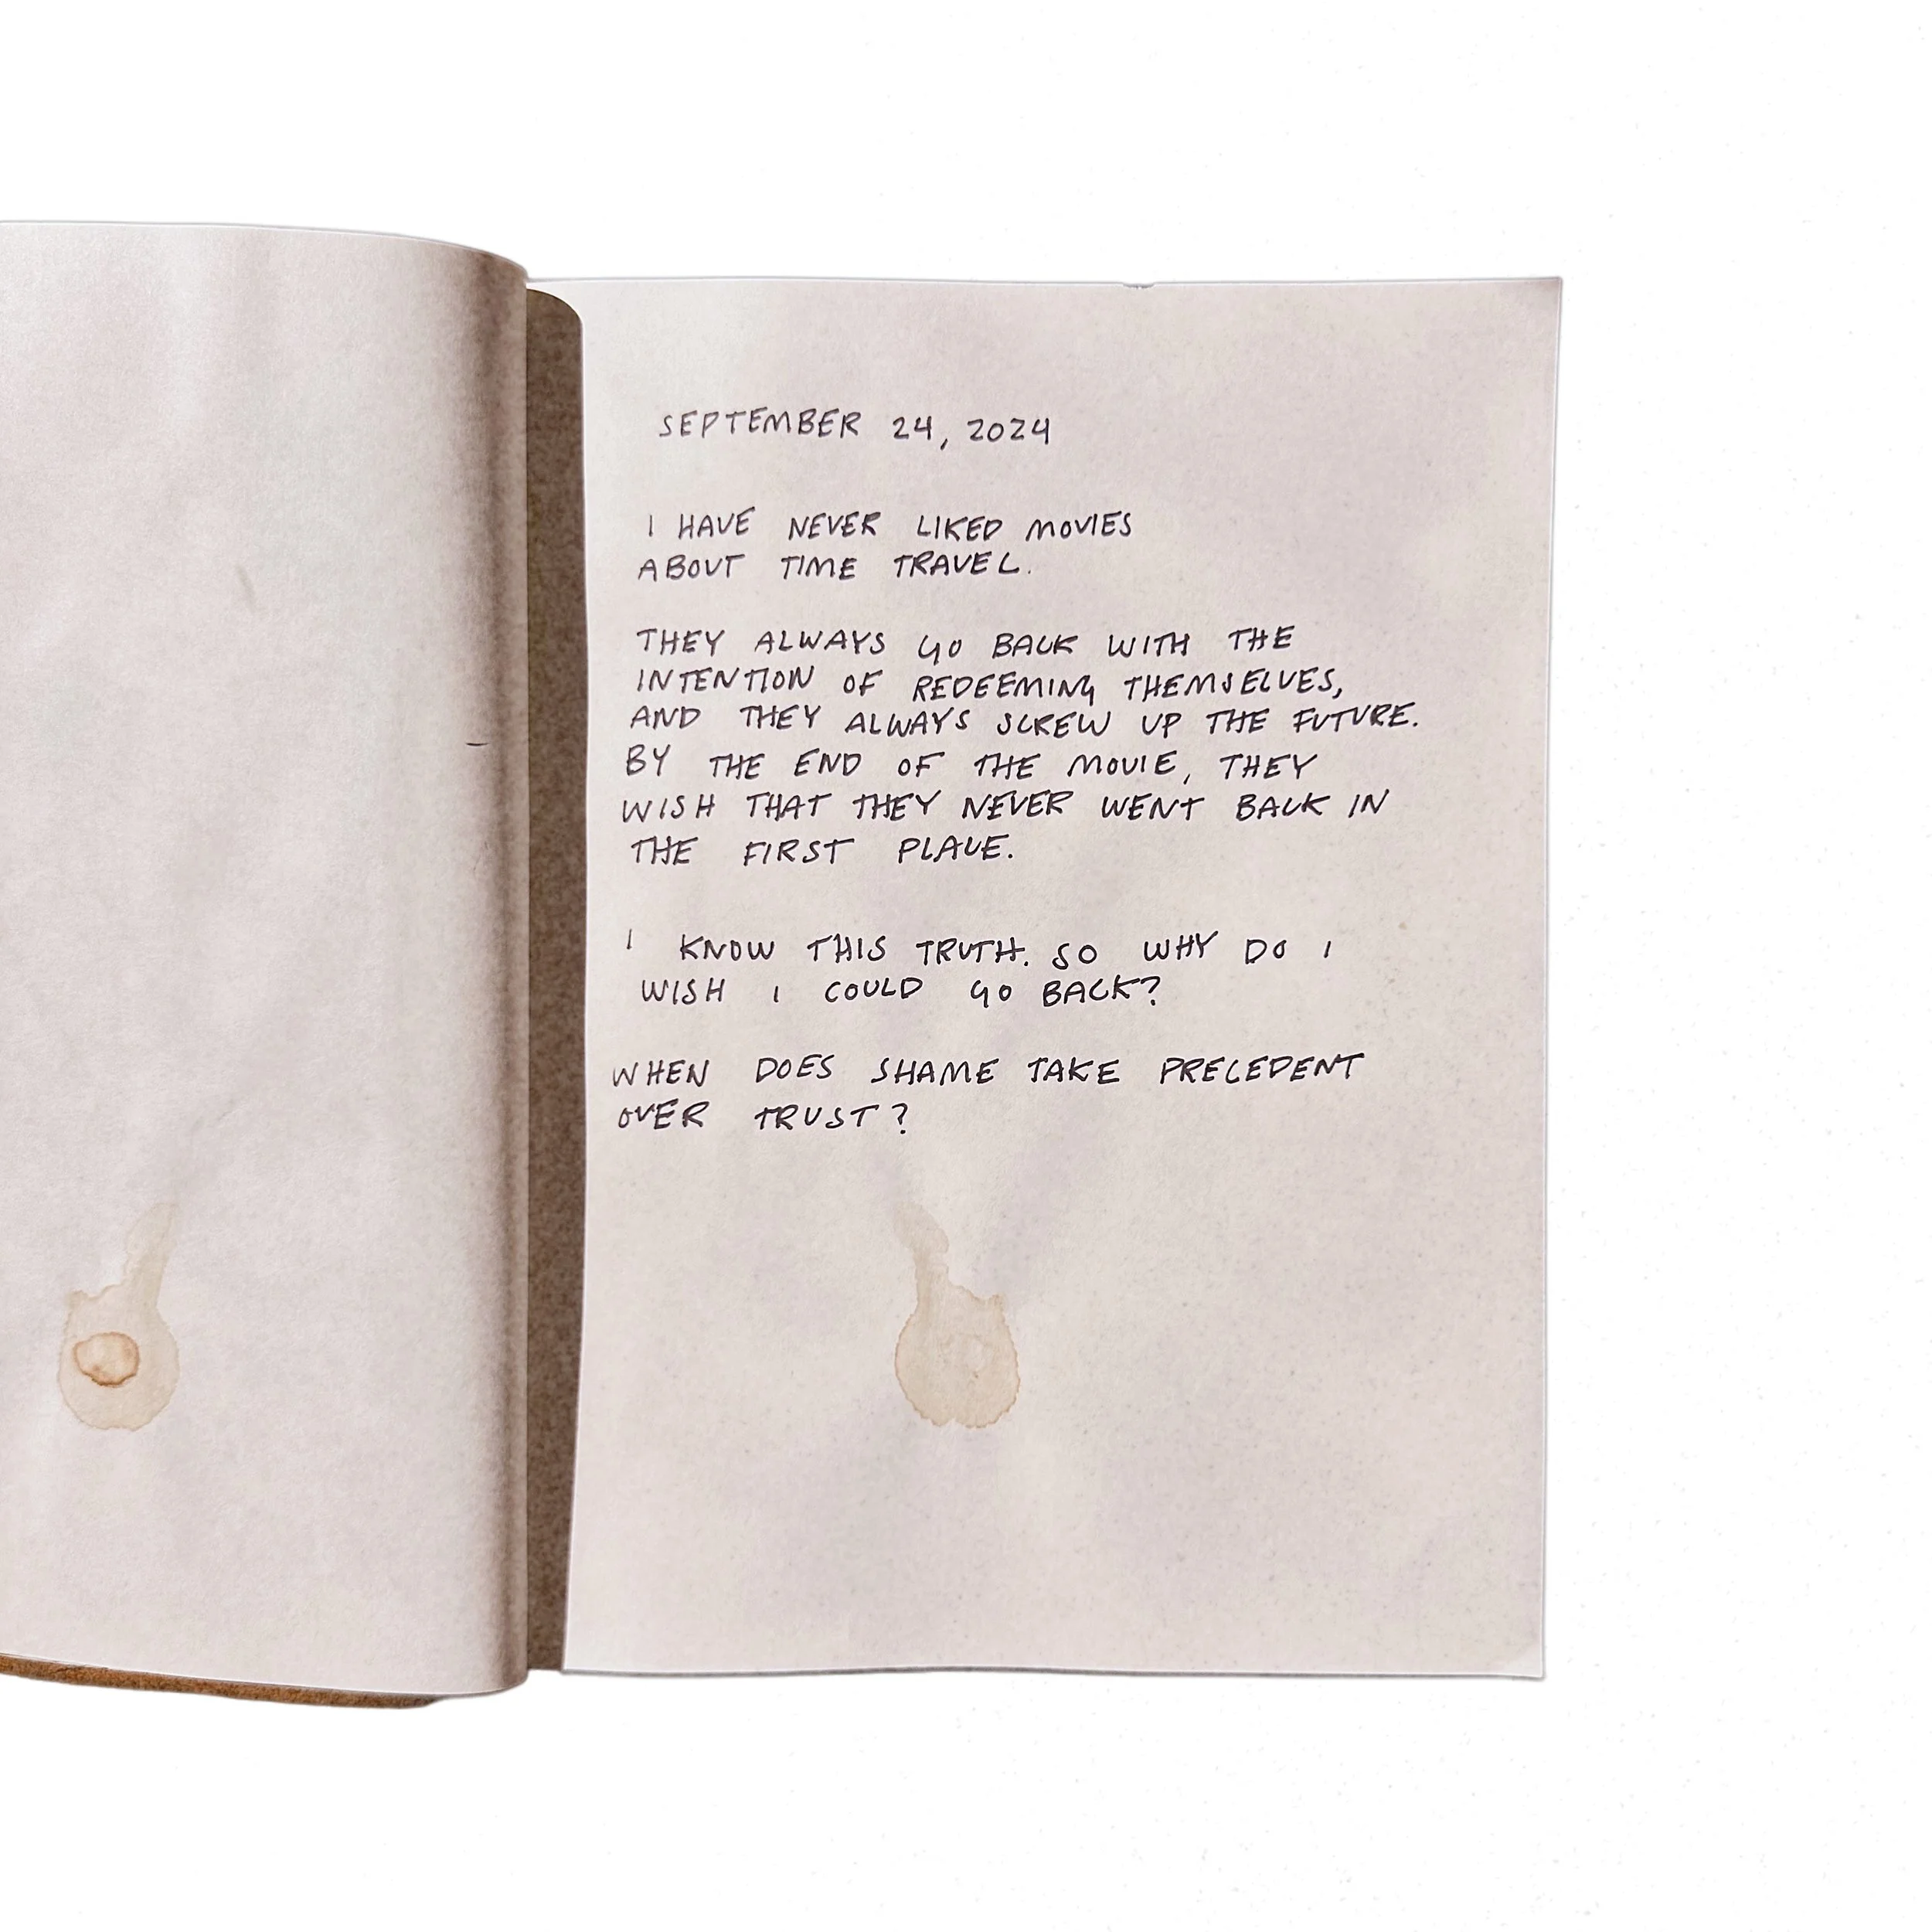 SEPTEMBER 24, 2024
I HAVE NEVER LIKED MOVIES
ABOUT TIME TRAVEL.
THEY ALWAYS GO BACK WITH THE
INTENTION OF REDEEMING THEMSELVES,
AND THEY ALWAYS SCREW UP THE FUTURE.
BY THE END OF THE MOVIE, THEY
WISH THAT THEY NEVER WENT BACK IN
THE FIRST PLACE.
I KNOW THIS TRUTH. SO WHY DO I
WISH I COULD GO BACK?
WHEN DOES SHAME TAKE PRECEDENT
OVER TRUST?